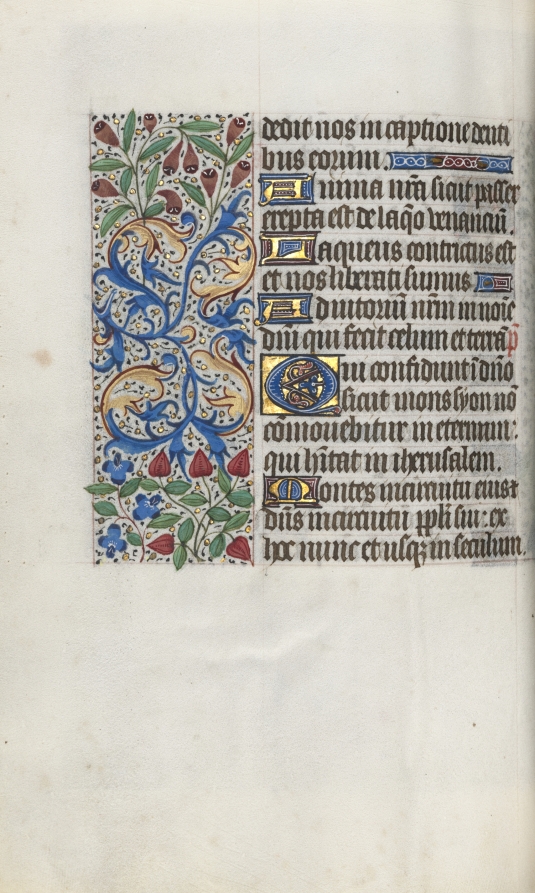 dedit nos in captione denti
bus eorum.
Anima n̄ra sicut passer
erepta est de laq̄o venanciū.
Laqueus contritus est
et nos liberati sumus
Adiutoriū n̄rm in noīe
dn̄i qui fecit celum et terrā p̄
Qui confidunt ī dn̄o
sicut mons syon nō
cōmouebitur in eternum:
qui hītat in iherusalem.
Montes in circuitu eius &
dn̄s in circuitu ppl̄i sui: ex
hoc nunc et usqꝫ in seculum.